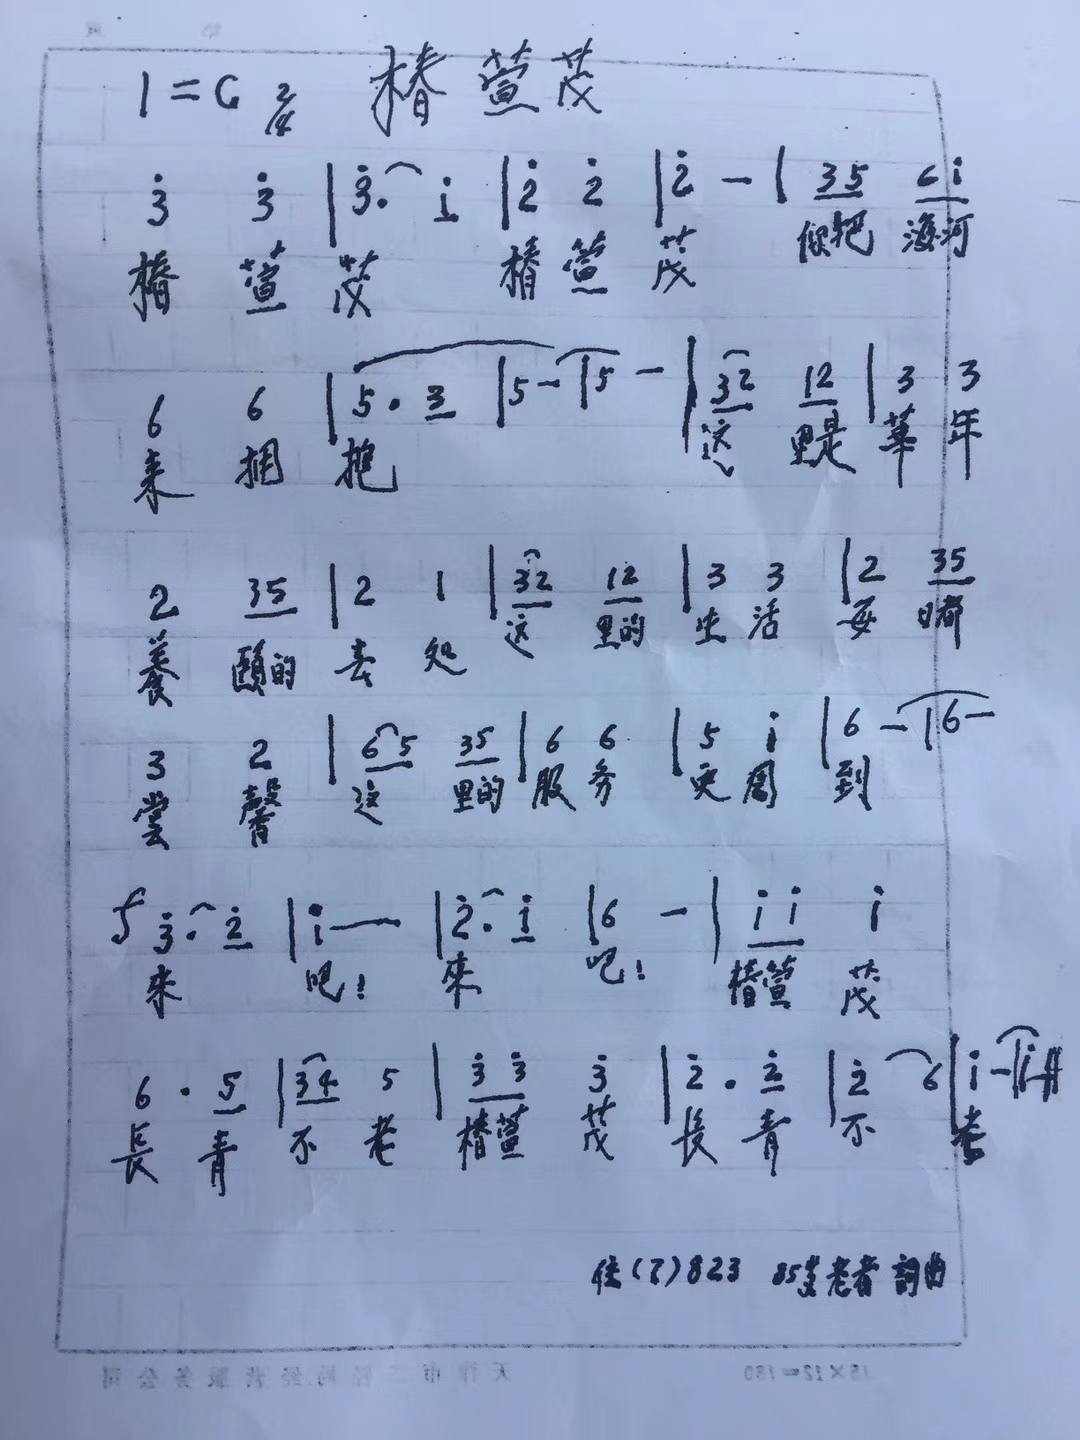 1=C 2/4 椿萱茂
3̇ 3̇ | 3̇. i̲ | 2̇ 2̇ | 2̇ - | 35 6i
椿 萱 茂 椿 萱 茂 你把 海河
6 6 | 5. 3 | 5 - | 5 - | 32 12 | 3 3
来 拥 抱 这 里是 華 年
2 35 | 2 1 | 32 12 | 3 3 | 2 35
养 颐的 去 处 这 里的 生 活 每 日都
3 2 | 65 35 | 6 6 | 5 i | 6 - | 6 -
尝 馨 这 里的 服 务 更 周 到
f 3̇. 2̇ | i — | 2̇. i | 6 - | i i i
来 吧! 來 吧! 椿萱 茂
6. 5 | 34 5 | 3̇ 3̇ 3̇ | 2̇. 2̇ | 2̇ 6 | i - | i
長 青 不 老 椿萱 茂 长 青 不 老
住(7)823 85岁老者 詞曲
天津市二轻局经营服务公司 15×12=180